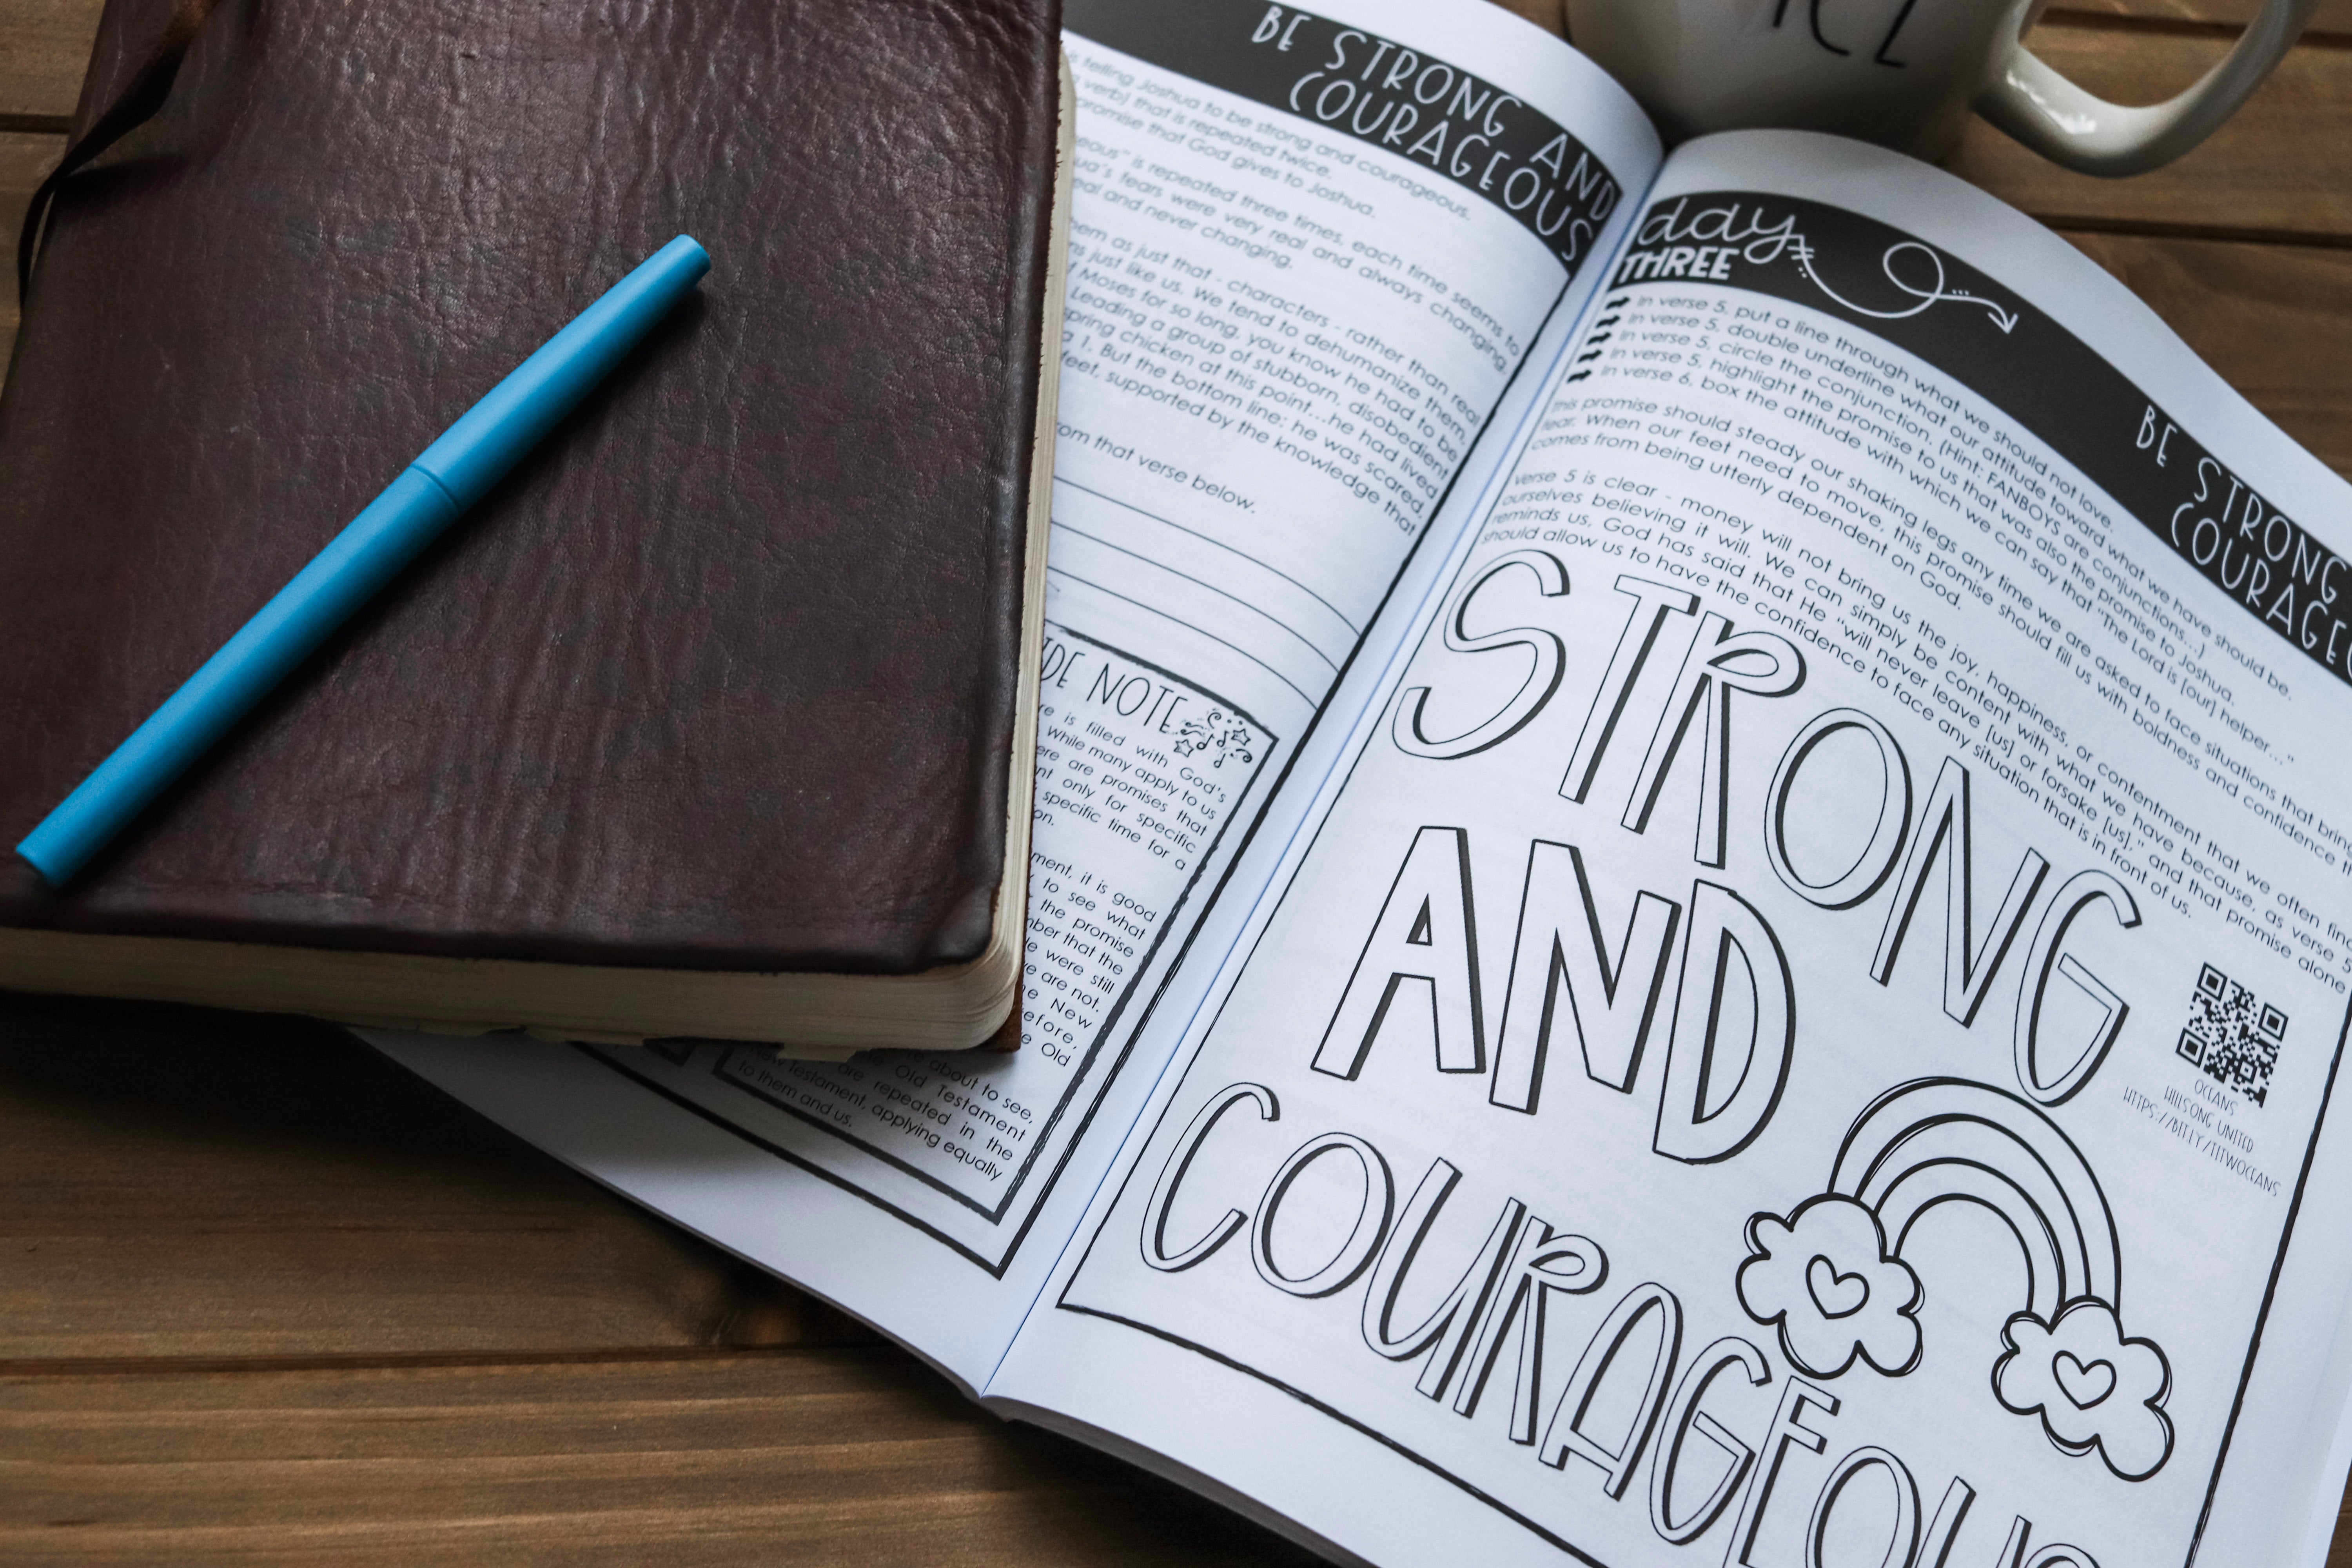 BE STRONG AND
COURAGEOUS
is telling Joshua to be strong and courageous.
verb) that is repeated twice.
promise that God gives to Joshua.
is repeated three times, each time seems to
fears were very real and always changing.
real and never changing.
as just that - characters - rather than real
just like us. We tend to dehumanize them.
Moses for so long, you know he had to be
Leading a group of stubborn, disobedient
spring chicken at this point...he had lived
1. But the bottom line: he was scared.
feet, supported by the knowledge that
that verse below.
NOTE
is filled with God's
While many apply to us
are promises that
only for specific
specific time for a
it is good
to see what
the promise
that the
were still
are not.
New
Old
about to see,
Old Testament
are repeated in the
Testament, applying equally
to them and us.
day
THREE
BE STRONG
In verse 5, put a line through what we should not love.
In verse 5, double underline what our attitude toward what we have should be.
In verse 5, circle the conjunction. (Hint: FANBOYS are conjunctions...)
In verse 5, highlight the promise to us that was also the promise to Joshua.
In verse 6, box the attitude with which we can say that "The Lord is [our] helper..."
This promise should steady our shaking legs any time we are asked to face situations that bring
fear. When our feet need to move, this promise should fill us with boldness and confidence
comes from being utterly dependent on God.
Verse 5 is clear - money will not bring us the joy, happiness, or contentment that we often find
ourselves believing it will. We can simply be content with what we have because, as verse 5
reminds us, God has said that He "will never leave [us] or forsake [us]," and that promise alone
should allow us to have the confidence to face any situation that is in front of us.
STRONG
AND
COURAGEOUS
OCEANS
HILLSONG UNITED
HTTPS://BIT.LY/TITWOCEANS